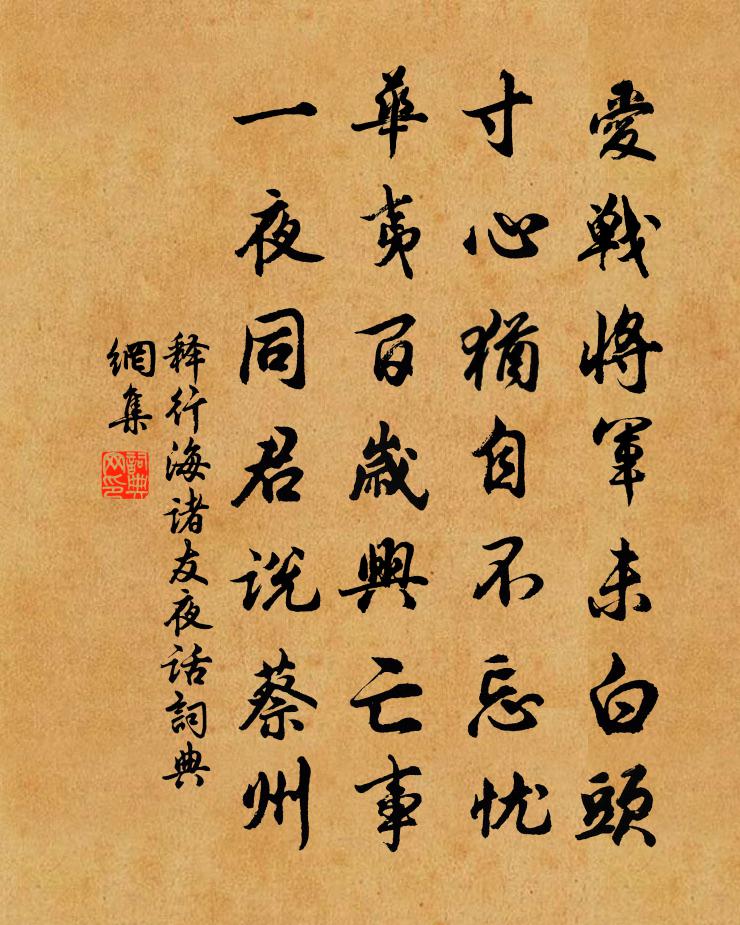 愛戰將軍未白頭
寸心猶自不忘忧
華夷百歲興亡事
一夜同君说蔡州
释行海诸友夜话詞典
網集
詞典
网印